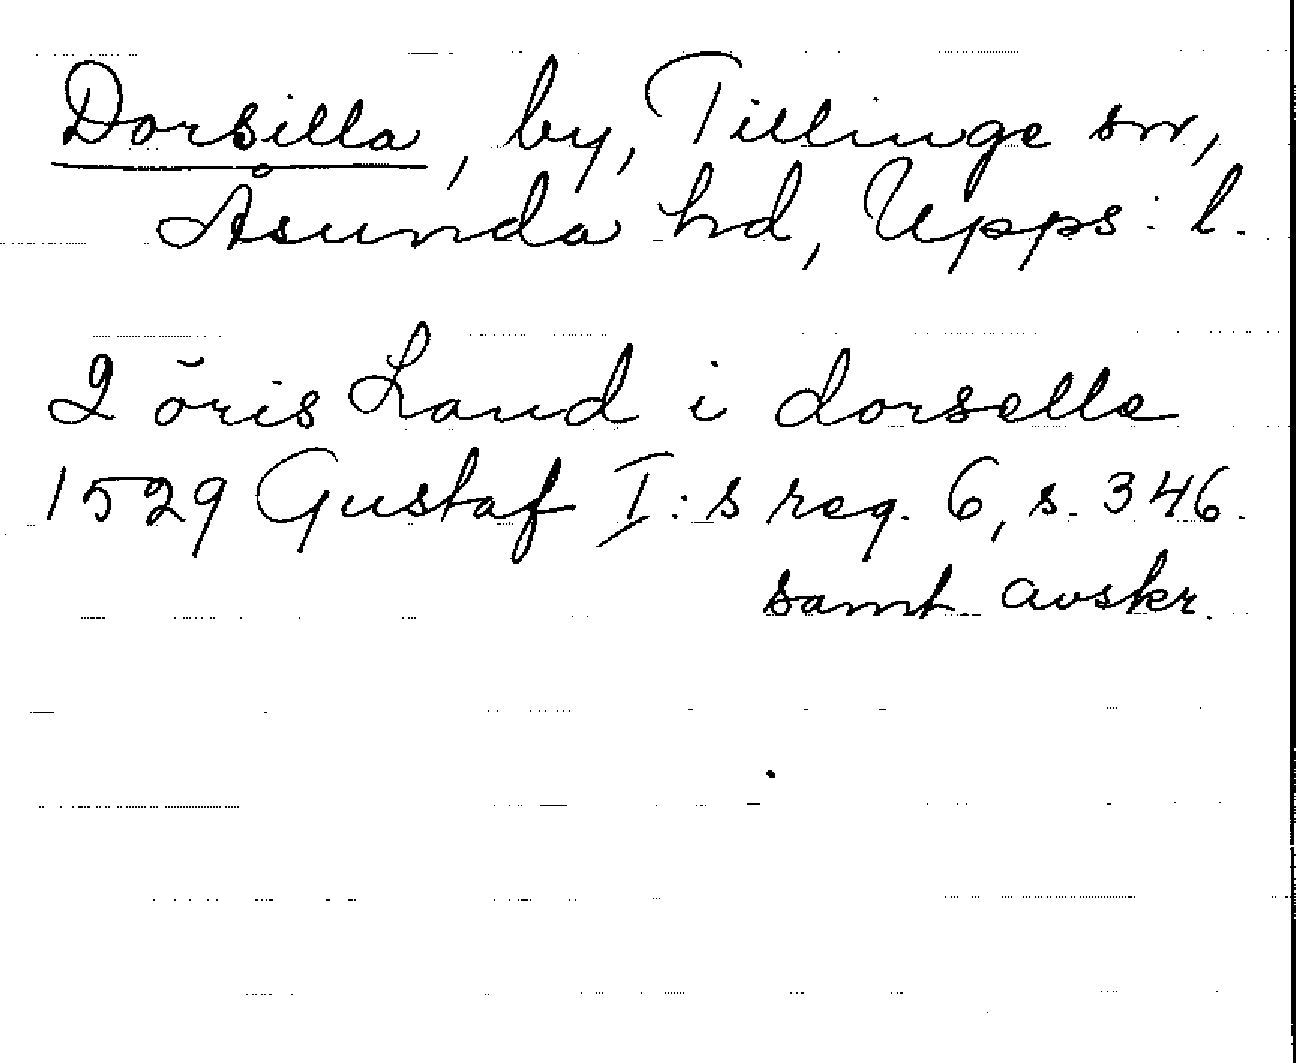 Dorsilla, by, Tillinge sn,
Åsunda hd, Upps. l.
2 öris Land i dorselle
1529 Gustaf I:s reg. 6, s. 346.
samt avskr.